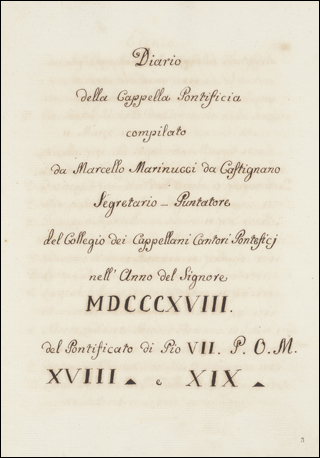 Diario
della Cappella Pontificia
compilato
da Marcello Marinucci da Castignano
Segretario - Puntatore
del Collegio dei Cappellani Cantori Pontificj
nell' Anno del Signore
MDCCCXVIII.
del Pontificato di Pio VII. P. O. M.
XVIII e XIX